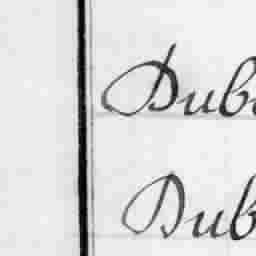 Dub
Dub